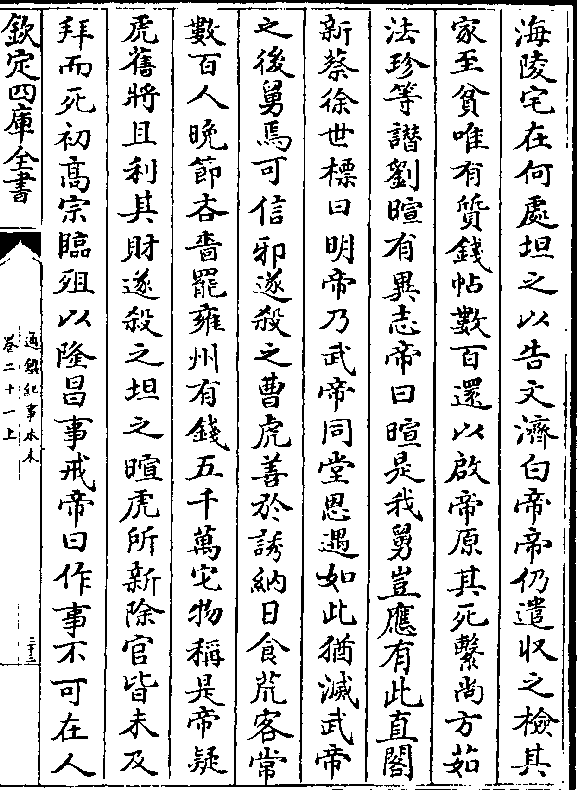 海陵宅在何處坦之以告文濟白帝帝仍遣收之檢其
家至貧唯有質錢帖數百還以啟帝原其死繫尚方茹
法珍等譖劉暄有異志帝曰暄是我舅豈應有此直閤
新蔡徐世標曰明帝乃武帝同堂恩遇如此猶滅武帝
之後舅焉可信邪遂殺之曹虎善於誘納日食荒客常
數百人晚節吝嗇罷雍州有錢五千萬它物稱是帝疑
虎舊將且利其財遂殺之坦之暄虎所新除官皆未及
拜而死初髙宗臨殂以隆昌事戒帝曰作事不可在人
欽定四庫全書
通鑑紀事本末
卷二十一上
二十三